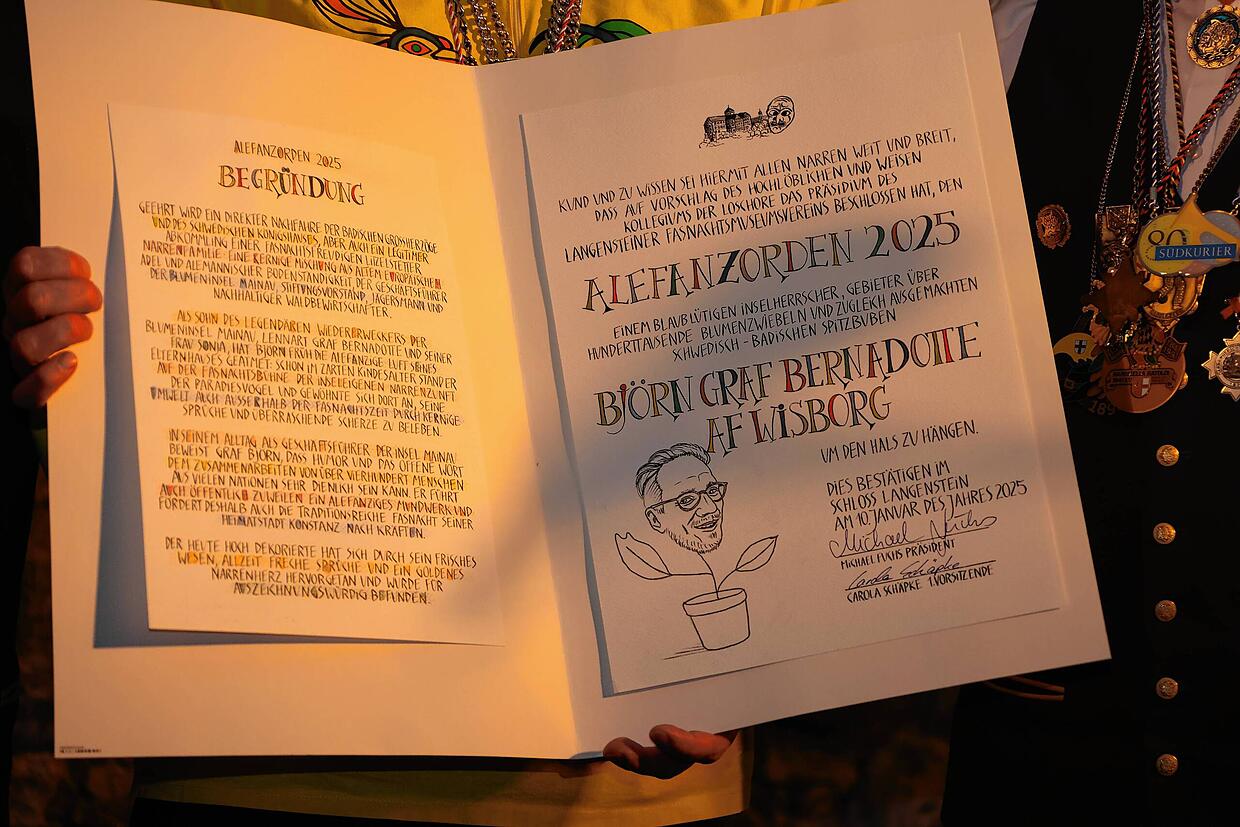 ALEFANZORDEN 2025
BEGRÜNDUNG
GEEHRT WIRD EIN DIREKTER NACHFAHRE DER BADISCHEN GROSSHERZÖGE
UND DES SCHWEDISCHEN KÖNIGSHAUSES, ABER AUCH EIN LEGITIMER
ABKÖMMLING EINER FASNACHTSFREUDIGEN LITZELSTETTER
NARRENFAMILIE - EINE KERNIGE MISCHUNG AUS ALTEM EUROPÄISCHEM
ADEL UND ALEMANNISCHER BODENSTÄNDIGKEIT DER GESCHÄFTSFÜHRER
DER BLUMENINSEL MAINAU, STIFTUNGSVORSTAND, JÄGERSMANN UND
NACHHALTIGER WALDBEWIRTSCHAFTER.
ALS SOHN DES LEGENDÄREN WIEDERERWECKERS DER
BLUMENINSEL MAINAU, LENNART GRAF BERNADOTTE UND SEINER
FRAU SONJA, HAT BJÖRN FRÜH DIE ALEFANZIGE LUFT SEINES
ELTERNHAUSES GEATMET: SCHON IM ZARTEN KINDESALTER STAND ER
AUF DER FASNACHTSBÜHNE DER INSELEIGENEN NARRENZUNFT
DER PARADIESVÖGEL UND GEWÖHNTE SICH DORT AN, SEINE
UMWELT AUCH AUSSERHALB DER FASNACHTSZEIT DURCH KERNIGE
SPRÜCHE UND ÜBERRASCHENDE SCHERZE ZU BELEBEN.
IN SEINEM ALLTAG ALS GESCHÄFTSFÜHRER DER INSEL MAINAU
BEWEIST GRAF BJÖRN, DASS HUMOR UND DAS OFFENE WORT
DEM ZUSAMMENARBEITEN VON ÜBER VIERHUNDERT MENSCHEN
AUS VIELEN NATIONEN SEHR DIENLICH SEIN KANN. ER FÜHRT
AUCH ÖFFENTLICH ZUWEILEN EIN ALEFANZIGES MUNDWERK UND
FÖRDERT DESHALB AUCH DIE TRADITIONSREICHE FASNACHT SEINER
HEIMATSTADT KONSTANZ NACH KRÄFTEN.
DER HEUTE HOCH DEKORIERTE HAT SICH DURCH SEIN FRISCHES
WESEN, ALLZEIT FRECHE SPRÜCHE UND EIN GOLDENES
NARRENHERZ HERVORGETAN UND WURDE FÜR
AUSZEICHNUNGSWÜRDIG BEFUNDEN.
KUND UND ZU WISSEN SEI HIERMIT ALLEN NARREN WEIT UND BREIT,
DASS AUF VORSCHLAG DES HOCHLÖBLICHEN UND WEISEN
KOLLEGIUMS DER LOSCHORE DAS PRÄSIDIUM DES
LANGENSTEINER FASNACHTSMUSEUMSVEREINS BESCHLOSSEN HAT, DEN
ALEFANZORDEN 2025
EINEM BLAUBLÜTIGEN INSELHERRSCHER, GEBIETER ÜBER
HUNDERTTAUSENDE BLUMENZWIEBELN UND ZUGLEICH AUSGEMACHTEN
SCHWEDISCH - BADISCHEN SPITZBUBEN
BJÖRN GRAF BERNADOTTE
AF WISBORG
UM DEN HALS ZU HÄNGEN.
DIES BESTÄTIGEN IM
SCHLOSS LANGENSTEIN
AM 10. JANUAR DES JAHRES 2025
Michael Fuchs
MICHAEL FUCHS PRÄSIDENT
Carola Schäpke
CAROLA SCHÄPKE 1. VORSITZENDE
80
SÜDKURIER